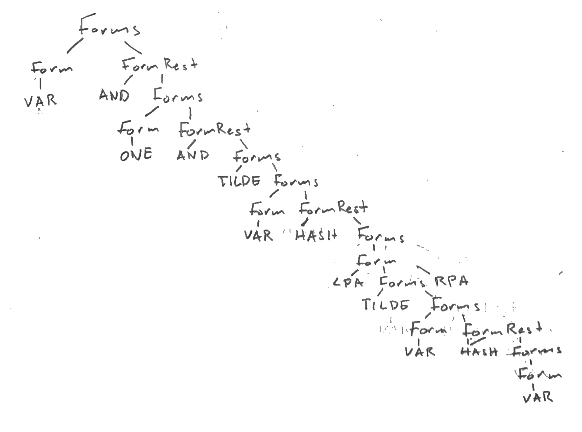 Forms
Form FormRest
VAR AND Forms
Form FormRest
ONE AND Forms
TILDE Forms
Form FormRest
VAR HASH Forms
Form
LPA Forms RPA
TILDE Forms
Form FormRest
VAR HASH Forms
Form
VAR